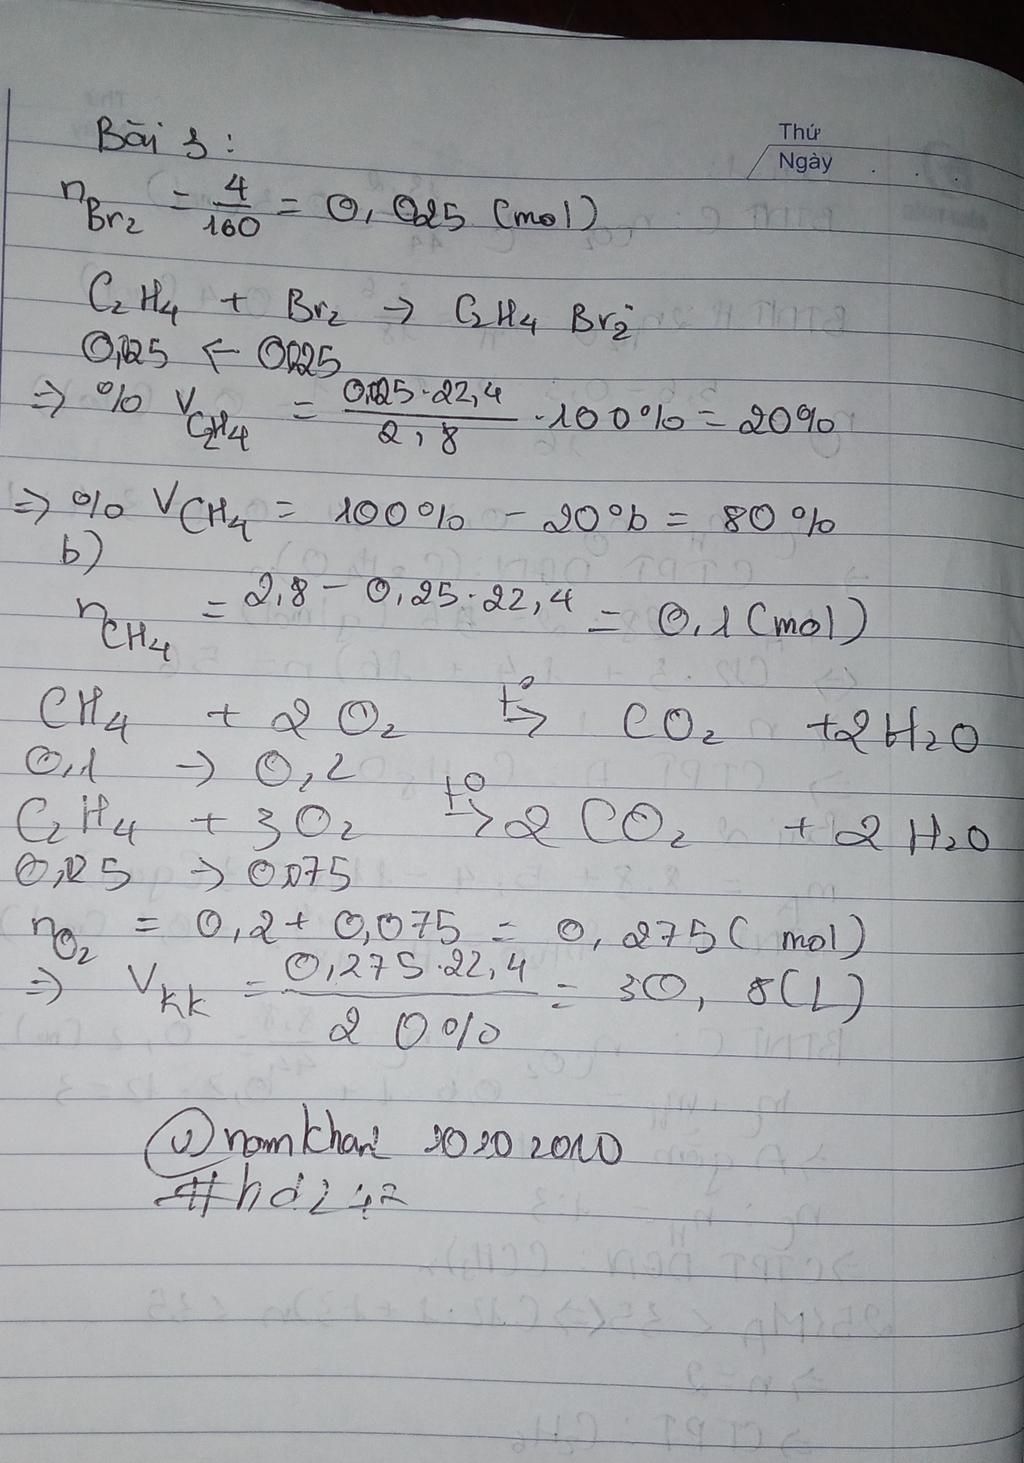 Thứ
Ngày
Bài 3:
n Br2 = 4/160 = 0,025 (mol)
C2H4 + Br2 → C2H4Br2
0,025 ← 0,025
⇒ % V C2H4 = 0,025.22,4/2,8 .100% = 20%
⇒ % V CH4 = 100% - 20% = 80%
b)
n CH4 = 2,8 - 0,25.22,4 = 0,1 (mol)
CH4 + 2O2 t°→ CO2 + 2H2O
0,1 → 0,2
C2H4 + 3O2 t°→ 2CO2 + 2H2O
0,025 → 0,075
n O2 = 0,2 + 0,075 = 0,275 (mol)
⇒ V kk = 0,275.22,4/20% = 30,8 (L)